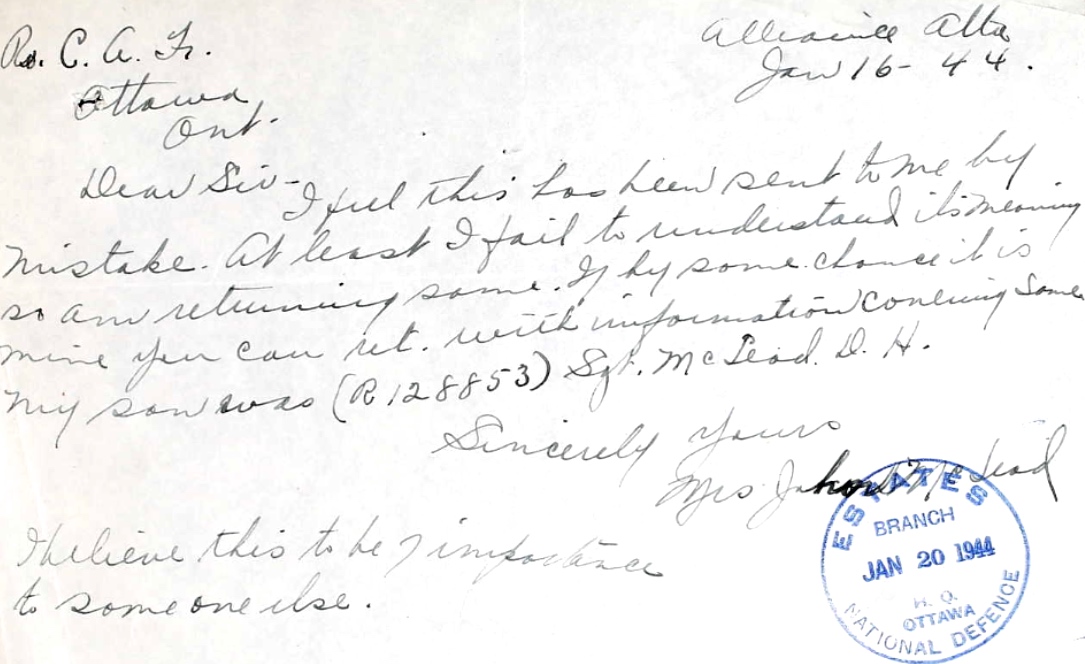 Alliance Alta
Jan 16 - 44.
R. C. A. F.
Ottawa
Ont.
Dear Sir -
I feel this has been sent to me by
mistake. At least I fail to understand its meaning
so am returning same. If by some chance it is
mine you can ret. with information concering same.
My son was (R 128853) Sgt. McLeod. D. H.
Sincerely yours
Mrs John McLeod
I believe this to be of importance
to someone else.
ESTATES
BRANCH
JAN 20 1944
H. Q.
OTTAWA
NATIONAL DEFENCE